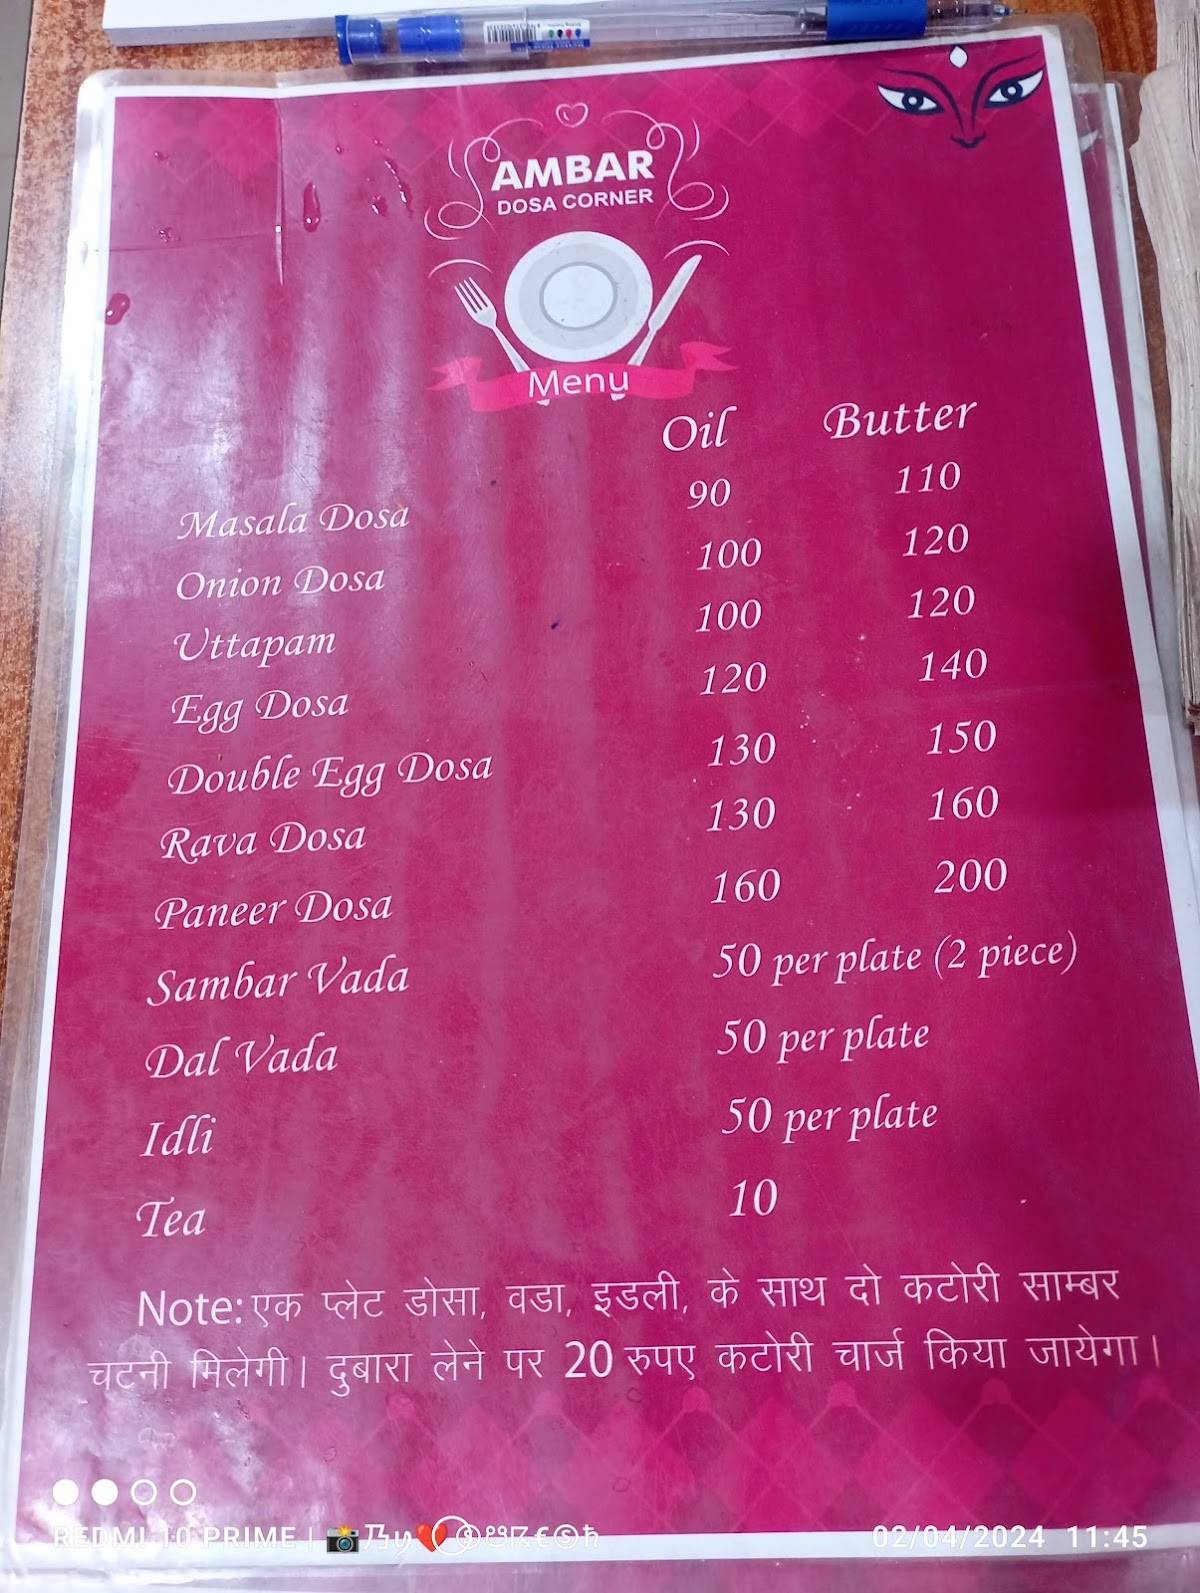 AMBAR
DOSA CORNER
Menu
Oil Butter
Masala Dosa 90 110
Onion Dosa 100 120
Uttapam 100 120
Egg Dosa 120 140
Double Egg Dosa 130 150
Rava Dosa 130 160
Paneer Dosa 160 200
Sambar Vada 50 per plate (2 piece)
Dal Vada 50 per plate
Idli 50 per plate
Tea 10
Note: एक प्लेट डोसा, वडा, इडली, के साथ दो कटोरी साम्बर
चटनी मिलेगी। दुबारा लेने पर 20 रुपए कटोरी चार्ज किया जायेगा।
REDMI 10 PRIME |
02/04/2024 11:45